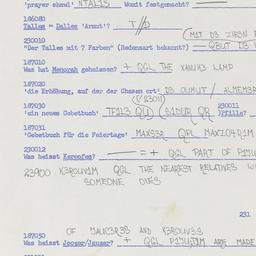 'prayer shawl' NTALIS Womit festgemacht?
186080
Tallem = Dalles 'Armut'? T//D
230010
"Der Talles mit 7 Farben" (Redensart bekannt?) — QBUT D3
187010
Was hat Menorah geheissen? + QGL THE XANUK3 LAMP
187020
'die Erhöhung, auf der der Chasen ort' D3 OUMUT / ALMEM3R
187030 (230011) 230011
'ein neues Gebetbuch' TFIL3 (SIDUR) )Ffille?
187031
'Gebetbuch für die Feiertage' MAXS3R QPL MAXZOR1M
230012
Was heisst Keroofes? — = + QGL PART OF
23900 K3ROUV1M QGL THE NEAREST RELATIVES
SOMEONE DIES
231
OF AND K3ROUV3S
187050
Was heisst Jooser/Jauzer? + QGL ARE MADE